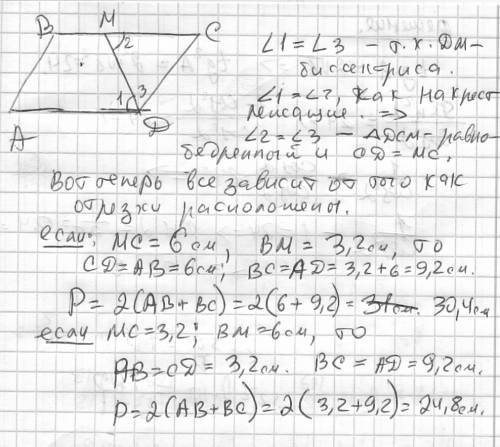 B M C
2
1 3
A D
∠1 = ∠3 – т.к. DM –
биссектриса.
∠1 = ∠2, как накрест
лежащие. =>
∠2 = ∠3 – ΔDCM – равно-
бедренный и CD = MC.
Вот теперь все зависит от того как
отрезки расположены.
если: MC = 6 см, BM = 3,2 см, то
CD = AB = 6 см; BC = AD = 3,2 + 6 = 9,2 см.
P = 2(AB + BC) = 2(6 + 9,2) = 30,4 см
если MC = 3,2; BM = 6 см, то
AB = CD = 3,2 см. BC = AD = 9,2 см.
P = 2(AB + BC) = 2(3,2 + 9,2) = 24,8 см.